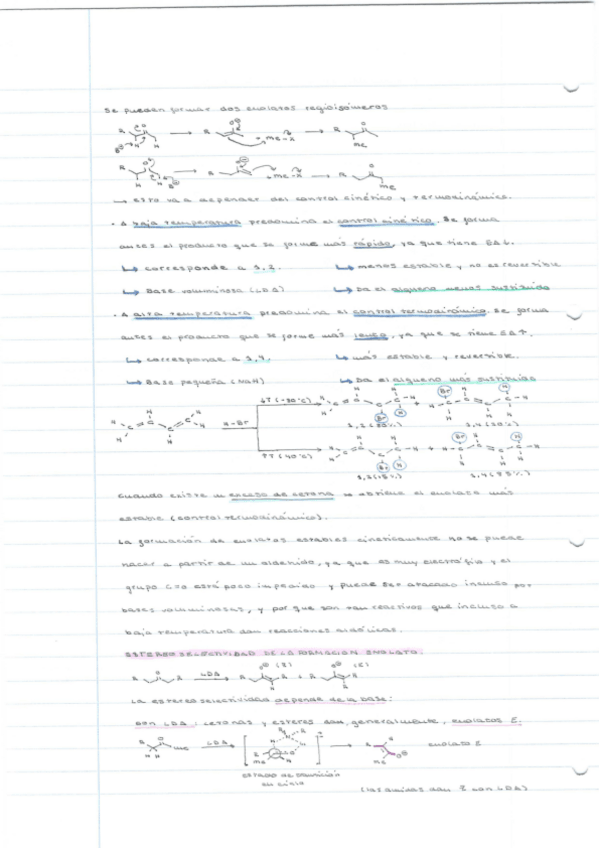 Se pueden formar dos enolatos regioisómeros
→ esto va a depender del control cinético y termodinámico.
· A baja temperatura predomina el control cinético. Se forma
antes el producto que se forme más rápido, ya que tiene EA↓.
↳ corresponde a 1,2. ↳ menos estable y no es reversible
↳ Base voluminosa (LDA) ↳ Da el alqueno menos sustituido
· A alta temperatura predomina el control termodinámico. Se forma
antes el producto que se forme más lento, ya que se tiene EA↑.
↳ corresponde a 1,4. ↳ más estable y reversible.
↳ Base pequeña (NaH) ↳ Da el alqueno más sustituido
H-Br
Cuando existe un exceso de cetona se obtiene el enolato más
estable (control termodinámico).
La formación de enolatos estables cineticamente no se puede
hacer a partir de un aldehído, ya que es muy electrófilo y el
grupo C=O está poco impedido y puede ser atacado incluso por
bases voluminosas, y por que son tan reactivos que incluso a
baja temperatura dan reacciones aldólicas.
ESTEREOSELECTIVIDAD DE LA FORMACIÓN ENOLATO:
LDA (Z) + (E)
La estereoselectividad depende de la base:
Con LDA: cetonas y ésteres dan, generalmente, enolatos E:
LDA
enolato E
estado de transición
en silla
(las amidas dan Z con LDA)